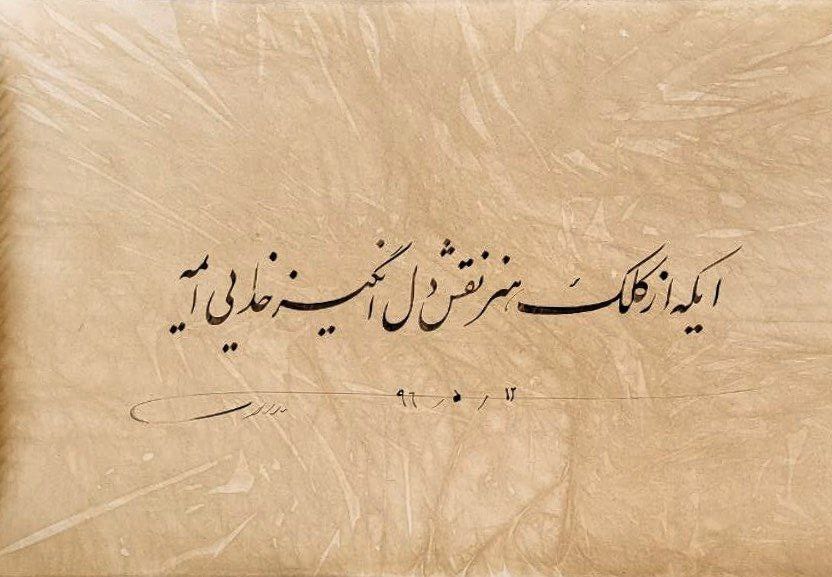 ایکه از کلک هنر نقش دل انگیز خدایی
۱۲ / ۵ / ۹۶